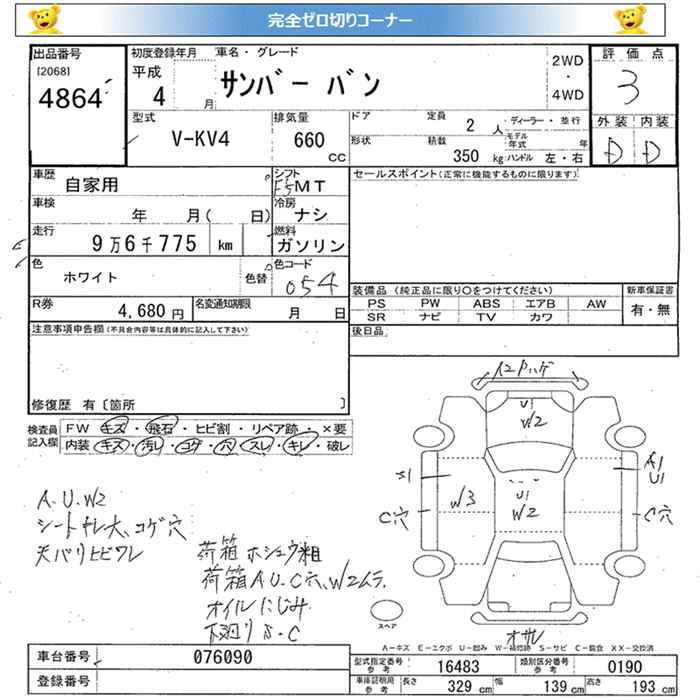 完全ゼロ切りコーナー
出品番号 初度登録年月 車名・グレード 2WD ・ 4WD 評価点
[2068] 平成
4864 4 月 サンバー バン 3
型式 排気量 ドア 定員 2人 ディーラー・並行 外装 内装
V-KV4 660 CC 形状 積載 350 kg モデル年式 年 ハンドル 左・右 D D
車歴 自家用 シフト F5MT セールスポイント(正常に機能するものに限ります)
車検 年 月( 日) 冷房 ナシ
走行 9万6千775 km 燃料 ガソリン
色 ホワイト 色替 色コード 054
装備品(純正品に限り○をつけてください) 新車保証書
R券 4,680円 名変通知期限 月 日 PS PW ABS エアB AW 有・無
SR ナビ TV カワ
注意事項申告欄(不具合内容等は具体的に記入して下さい) 後日品
修復歴 有〔箇所 〕
検査員記入欄 FW キズ・飛石・ヒビ割・リペア跡・×要
内装 キズ・汚レ・コゲ・穴・スレ・キレ・破レ
U1
W2
S1
W3
U1
W2
A1
U1
C穴
C穴
A.U.W2
シートキレ大、コゲ穴
天バリヒビワレ
荷箱 ホシュウ粗
荷箱A.U.C穴、W2ムラ
オイルにじみ
下廻りS.C
スペア
A-キズ E-エクボ U-凹み W-補修跡 S-サビ C-腐食 XX-交換済
車台番号 076090 型式指定番号 参考 16483 類別区分番号 参考 0190
登録番号 車庫証明用 参考 長さ 329 cm 幅 139 cm 高さ 193 cm